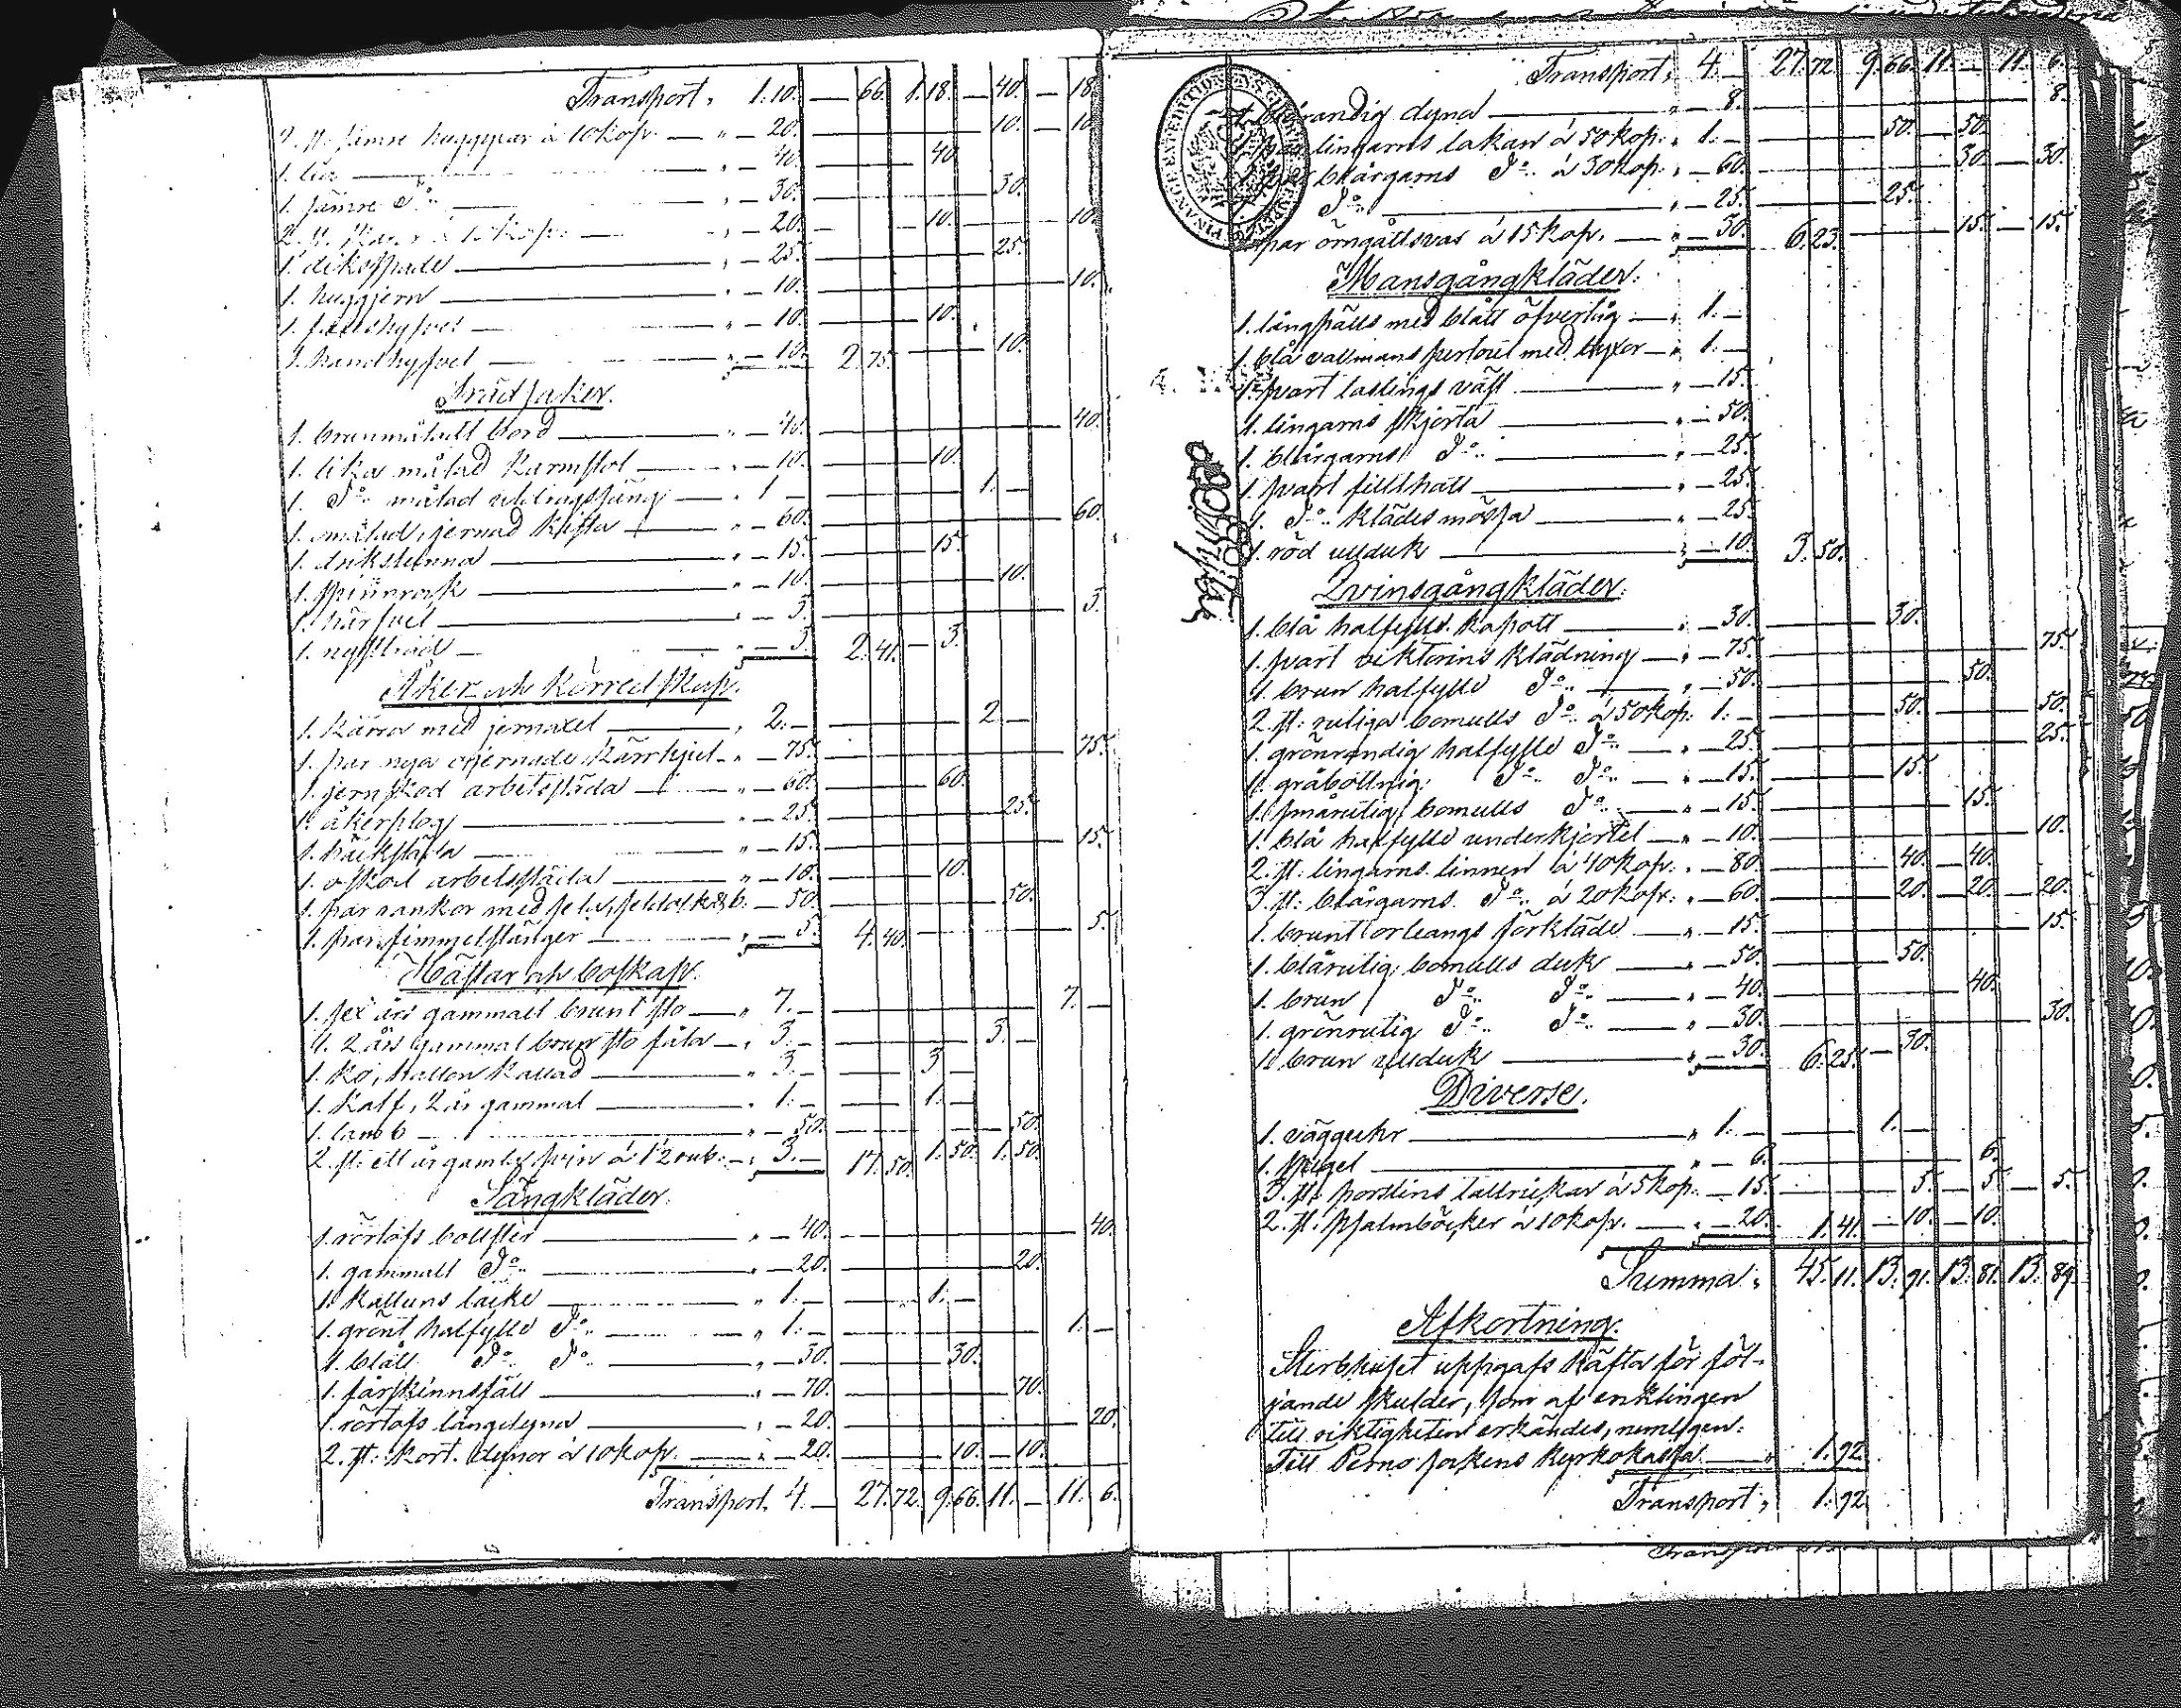 Transport, 1.10. — 66. 1.18. — 40. — 18.
2. st. sämre huggyxar à 10 kop. — " — 20. — 10. — 10.
1. lia — " — 40. — 40.
1. sämre Do — " — 30. — 30.
2. st. à 10 kop. — " — 20. — 10. — 10.
1. dikesspade — " — 25. — 25.
1. huggjern — " — 10. — 10.
1. — " — 10. — 10.
1. handhyfvel — " — 10. 2.75. — 10.
Trädsaker.
1. brunmåladt bord — " — 40. — 40.
1. lika målad karmstol — " — 10. — 10.
1. Do målad utdragssäng — " 1. — 1. —
1. målad, jernad kista — " — 60. — 60.
1. drikstunna — " — 15. — 15.
1. spinnrock — " — 10. — 10.
1. härfvel — " — 3. — 3.
1. nystträd — " — 3. 2.41. — 3.
Åker och körredskap.
1. kärra med jernaxel — " 2. — 2. —
1. par nya ojernade kärrhjul — " — 75. — 75.
1. jernskod arbetssläda — " — 60. — 60.
1. åkerplog — " — 25. — 25.
1. häcksläda — " — 15. — 15.
1. oskod arbetssläda — " — 10. — 10.
1. par rankor med sela, — 50. — 50.
1. par fimmelstänger — " — 5. 4.40. — 5.
Hästar och boskap.
1. sex års gammalt brunt sto — " 7. — 7. —
1. 2 års gammal brun sto fåla — " 3. — 3. —
1. ko, hallon kallad — " 3. — 3. —
1. kalf, 2 år gammal — " 1. — 1. —
1. lamb — " — 50. — 50.
2. st. ett år gamla svin à 1½ rub. — " 3. — 17.50. 1.50. 1.50.
Sängkläder.
1. rörtofs bolster — " — 40. — 40.
1. gammalt Do — " — 20. — 20.
1. kattuns täcke — " 1. — 1. —
1. grönt halfylle Do — " 1. — 1. —
1. blått Do Do — " — 30. — 30.
1. fårskinnsfäll — " — 70. — 70.
1. rörtofs långdyna — " — 20. — 20.
2. st. kort. dynor à 10 kop. — " — 20. — 10. — 10.
Transport. 4. — 27.72. 9.66. 11. — 11. 6.
Transport, 4. — 27.72. 9.66. 11. — 11. 6.
1. blårandig dyna — " — 8. — 8.
1. par lingarns lakan à 50 kop. " 1. — 50. — 50.
blårgarns Do à 30 kop. " — 60. — 30. — 30.
Do — " — 25. — 25.
par örngåttsvar à 15 kop. — " — 30. 6.23. — 15. — 15.
Mansgångkläder.
1. långpälts med blått öfvertåg — " 1. —
1. blå vallmans med byxor — " 1. —
1. svart lastings väst — " — 15.
1. lingarns skjorta — " — 50.
1. blårgarns Do — " — 25.
1. svart filthatt — " — 25.
1. Do klädes mössa — " — 25.
1. röd ullduk — " — 10. 3.50.
Qvinsgångkläder.
1. blå halfylle kapott — " — 30. — 30.
1. svart viktorins klädning — " — 75. — 75.
1. brun halfylle Do — " — 50. — 50.
2. st. rutiga bomulls Do à 50 kop. 1. — 50. — 50.
1. grönrandig halfylle Do — " — 25. — 25.
1. gråbottnig Do Do — " — 15. — 15.
1. smårutig bomulls Do — " — 15. — 15.
1. blå halfylle underkjortel — " — 10. — 10.
2. st. lingarns linnen à 40 kop. " — 80. — 40. — 40.
3. st. blårgarns Do à 20 kop. " — 60. — 20. — 20. — 20.
1. brunt orleangs förkläde — " — 15. — 15.
1. blårutig bomulls duk — " — 50. — 50.
1. brun Do Do — " — 40. — 40.
1. grönrutig Do Do — " — 30. — 30.
1. brun ullduk — " — 30. 6.25. — 30.
Diverse.
1. vägguhr — " 1. — 1. —
1. spegel — " — 6. — 6.
3. st. porslins tallrickar à 5 kop. — 15. — 5. — 5. — 5.
2. st. psalmböcker à 10 kop. — " — 20. 1.41. — 10. — 10.
Summa, 45.11. 13.91. 13.81. 13.89.
Afkortning.
Sterbhuset uppgafs häfta för föl-
jande skulder, som af enklingen
till riktigheten erkändes, nemligen:
Till Perno sockens kyrkokassa — " 1.92.
Transport, 1.92.